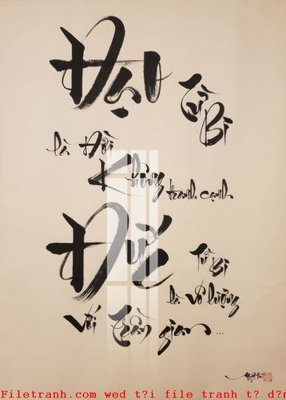 Đạo Từ Bi
là Đời
Không tranh cạnh
Đức Từ Bi
là vô lượng
với trần gian...
Filetranh.com wed t?i file tranh t?